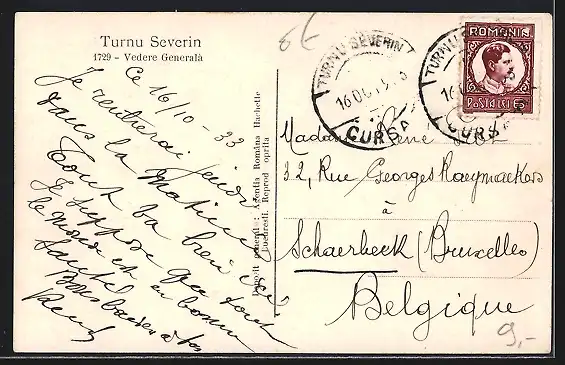 Turnu Severin
1729 - Vedere Generală
Ce 16/10 - 33
Je rentrerai jeudi
dans la matinée
Tout va bien ici
Je suppose que tout
le monde est en bonne
santé
Bons baisers à tous
René
Depozit general: Agentia Română Hachette
Bucuresti. Reprod oprita
6€
TURNU SEVERIN
16 OC
CURSA
TURNU
16
CURSA
ROMANIA
POSTA LEI 6
Madame René
32, Rue Georges Raeymaekers
à
Schaerbeek (Bruxelles)
Belgique
9,-